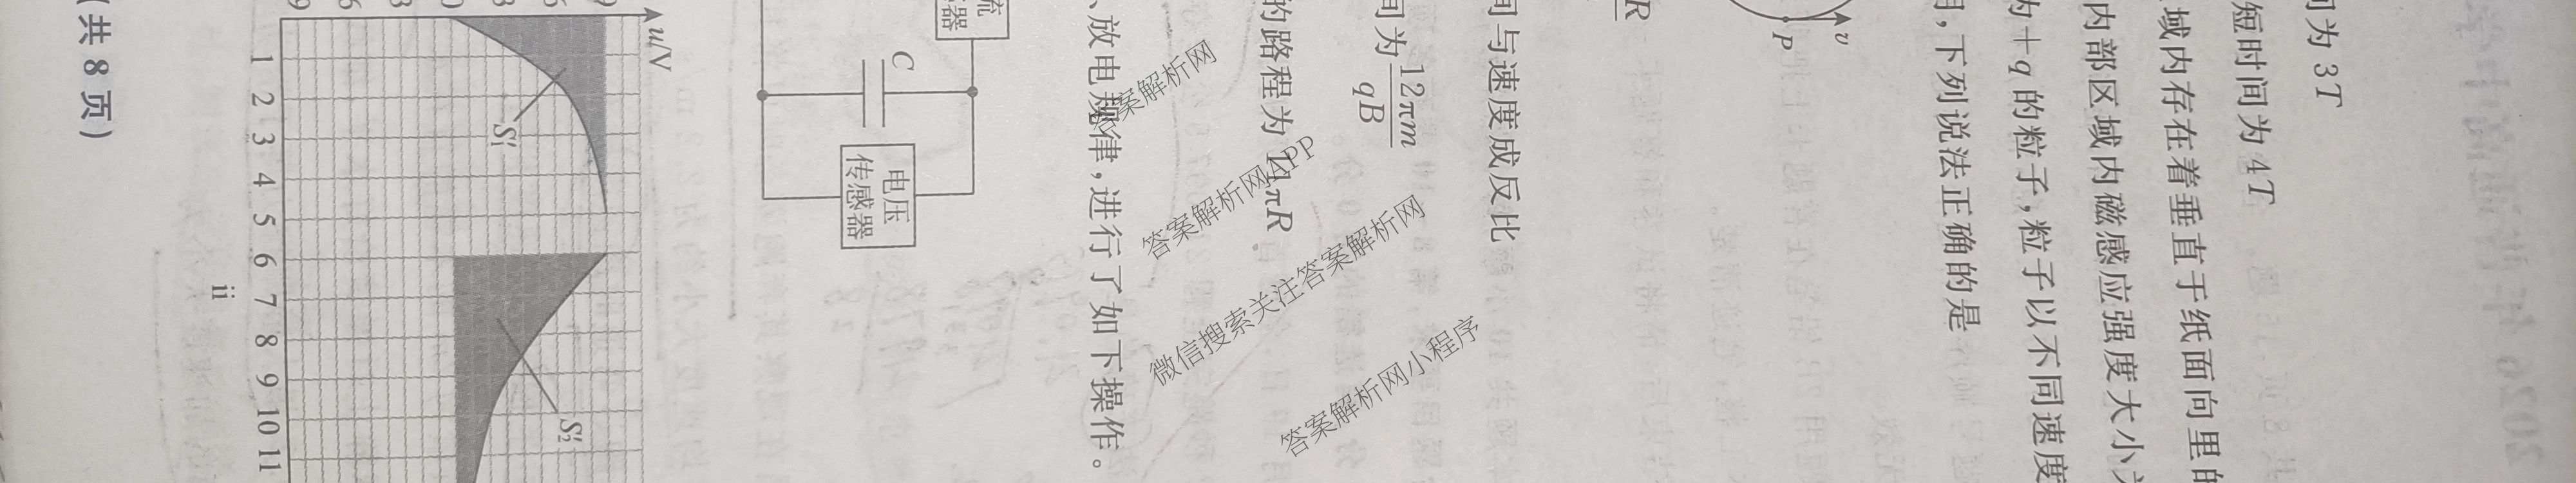 间为 3T
短时间为 4T
域内存在着垂直于纸面向里的
内部区域内磁感应强度大小为
为+q 的粒子,粒子以不同速度
月,下列说法正确的是
v
P
R
间与速度成反比
间为12πm/qB
的路程为 14πR
流
感器
C
电压
传感器
、放电规律,进行了如下操作。
u/V
9
6
3
0
3
6
9
1 2 3 4 5 6 7 8 9 10 11
S₁′
S₂′
ii
(共 8 页)
答案解析网
答案解析网APP
微信搜索关注答案解析网
答案解析网小程序